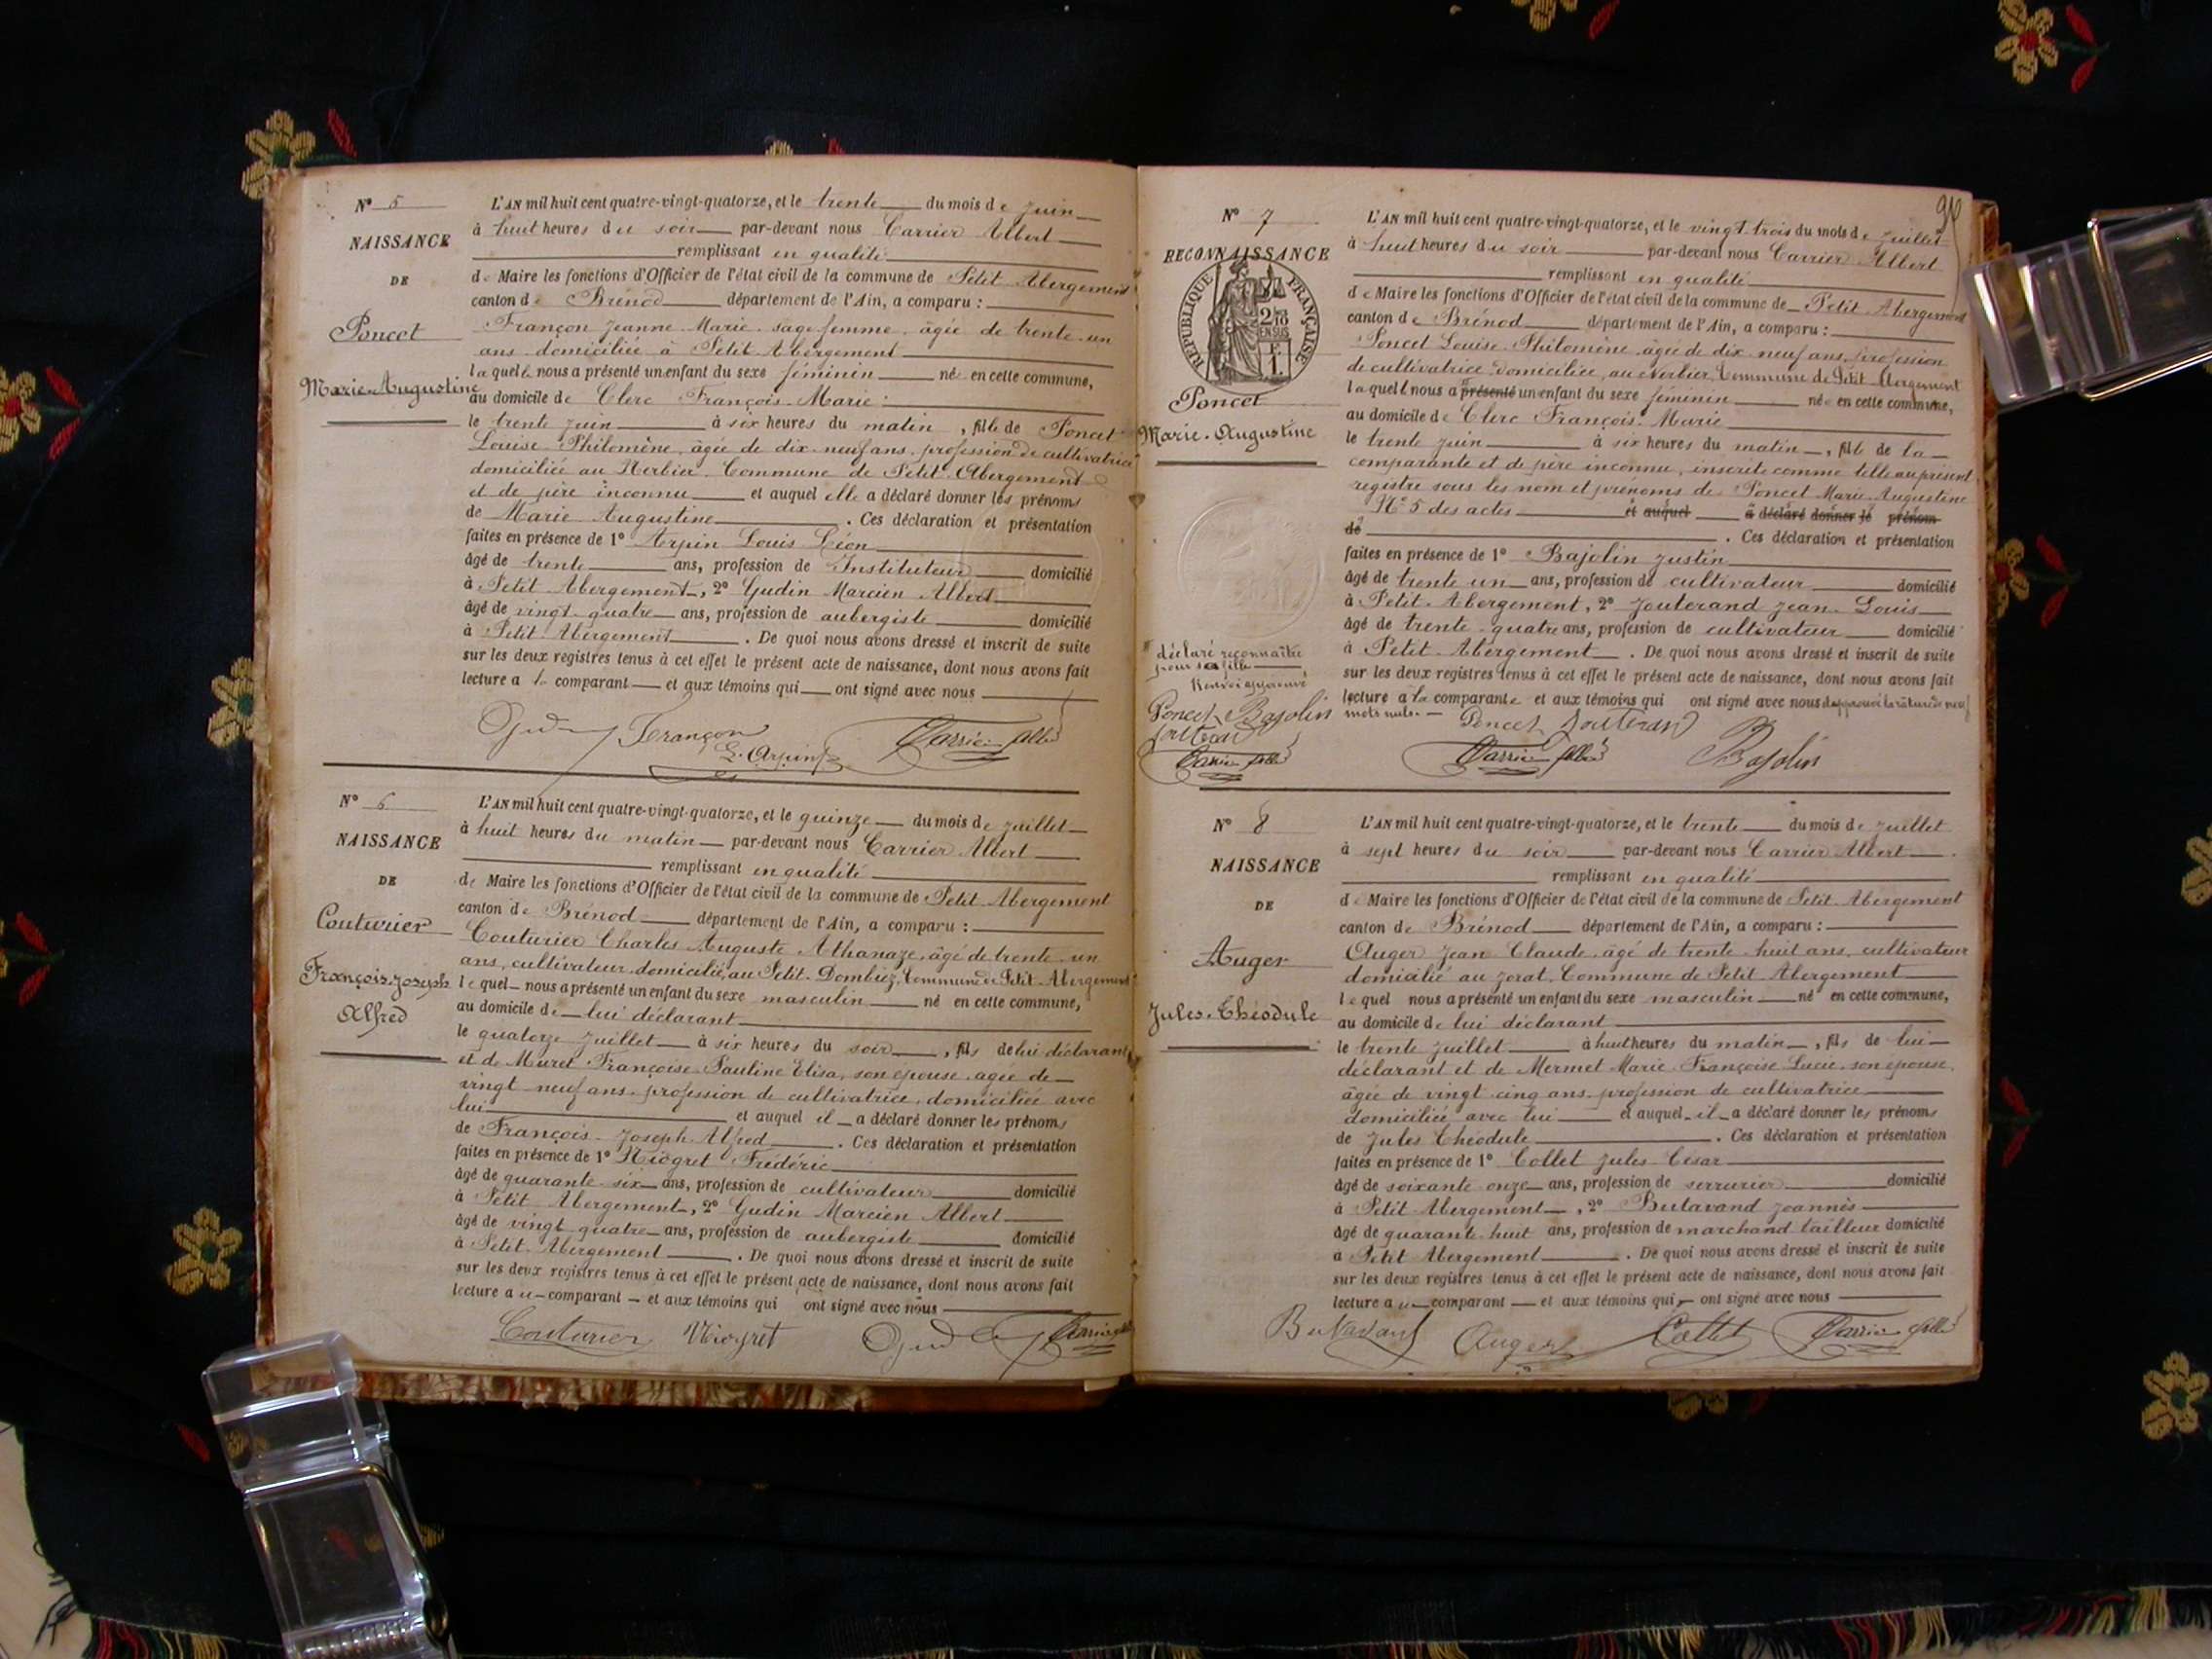 N° 5
NAISSANCE
DE
Poncet
Marie-Augustine
L'AN mil huit cent quatre-vingt-quatorze, et le trente du mois de juin
à huit heures du soir par-devant nous Carrier Albert
remplissant en qualité
de Maire les fonctions d'Officier de l'état civil de la commune de Petit Abergement
canton de Brénod département de l'Ain, a comparu :
Françon Jeanne Marie sage femme âgée de trente un
ans domiciliée à Petit Abergement
laquelle nous a présenté un enfant du sexe féminin née en cette commune,
au domicile de Clerc François Marie
le trente juin à six heures du matin, fille de Poncet
Louise Philomène, âgée de dix neuf ans, profession de cultivatrice
domiciliée au Nerbier Commune de Petit Abergement
et de père inconnu et auquel elle a déclaré donner les prénoms
de Marie Augustine. Ces déclaration et présentation
faites en présence de 1° Arpin Louis Léon
âgé de trente ans, profession de Instituteur domicilié
à Petit Abergement, 2° Gudin Marcien Albert
âgé de vingt quatre ans, profession de aubergiste domicilié
à Petit Abergement. De quoi nous avons dressé et inscrit de suite
sur les deux registres tenus à cet effet le présent acte de naissance, dont nous avons fait
lecture a la comparant et aux témoins qui ont signé avec nous
Françon
L. Arpin Carrier Albert
N° 6
NAISSANCE
DE
Couturier
François Joseph
Alfred
L'AN mil huit cent quatre-vingt-quatorze, et le quinze du mois de juillet
à huit heures du matin par-devant nous Carrier Albert
remplissant en qualité
de Maire les fonctions d'Officier de l'état civil de la commune de Petit Abergement
canton de Brénod département de l'Ain, a comparu :
Couturier Charles Auguste Athanaze, âgé de trente un
ans, cultivateur domicilié au Petit Dombiez, Commune de Petit Abergement
lequel nous a présenté un enfant du sexe masculin né en cette commune,
au domicile de lui déclarant
le quatorze juillet à six heures du soir, fils de lui déclarant
et de Muret Françoise Pauline Elisa, son épouse âgée de
vingt neuf ans, profession de cultivatrice, domiciliée avec
lui et auquel il a déclaré donner les prénoms
de François Joseph Alfred. Ces déclaration et présentation
faites en présence de 1° Niogret Frédéric
âgé de quarante six ans, profession de cultivateur domicilié
à Petit Abergement, 2° Gudin Marcien Albert
âgé de vingt quatre ans, profession de aubergiste domicilié
à Petit Abergement. De quoi nous avons dressé et inscrit de suite
sur les deux registres tenus à cet effet le présent acte de naissance, dont nous avons fait
lecture au comparant et aux témoins qui ont signé avec nous
Couturier Niogret Carrier
N° 7
RECONNAISSANCE
RÉPUBLIQUE FRANÇAISE
Poncet
Marie-Augustine
L'AN mil huit cent quatre-vingt-quatorze, et le vingt trois du mois de juillet
à huit heures du soir par-devant nous Carrier Albert
remplissant en qualité
de Maire les fonctions d'Officier de l'état civil de la commune de Petit Abergement
canton de Brénod département de l'Ain, a comparu :
Poncet Louise Philomène âgée de dix neuf ans, profession
de cultivatrice domiciliée, au Nerbier, Commune de Petit Abergement
laquelle nous a présenté un enfant du sexe féminin née en cette commune,
au domicile de Clerc François Marie
le trente juin à six heures du matin, fille de la
comparante et de père inconnu, inscrite comme telle au présent
registre sous les nom et prénoms de Poncet Marie Augustine
N° 5 des actes et auquel a déclaré donner le prénom
de. Ces déclaration et présentation
faites en présence de 1° Bajolin Justin
âgé de trente un ans, profession de cultivateur domicilié
à Petit Abergement, 2° Jouterand Jean Louis
âgé de trente quatre ans, profession de cultivateur domicilié
à Petit Abergement. De quoi nous avons dressé et inscrit de suite
sur les deux registres tenus à cet effet le présent acte de naissance, dont nous avons fait
lecture a la comparante et aux témoins qui ont signé avec nous
mots nuls.
déclaré reconnaître
pour sa fille
Renvoi approuvé
Poncet Bajolin
Carrier Albert
Poncet Jouterand
Carrier Albert Bajolin
N° 8
NAISSANCE
DE
Auger
Jules-Théodule
L'AN mil huit cent quatre-vingt-quatorze, et le trente du mois de juillet
à sept heures du soir par-devant nous Carrier Albert
remplissant en qualité
de Maire les fonctions d'Officier de l'état civil de la commune de Petit Abergement
canton de Brénod département de l'Ain, a comparu :
Auger Jean Claude, âgé de trente huit ans, cultivateur
domicilié au Jorat Commune de Petit Abergement
lequel nous a présenté un enfant du sexe masculin né en cette commune,
au domicile de lui déclarant
le trente juillet à huit heures du matin, fils de lui
déclarant et de Mermet Marie Françoise Lucie son épouse,
âgée de vingt cinq ans, profession de cultivatrice
domiciliée avec lui et auquel il a déclaré donner les prénoms
de Jules Théodule. Ces déclaration et présentation
faites en présence de 1° Collet Jules César
âgé de soixante onze ans, profession de serrurier domicilié
à Petit Abergement, 2° Butavand Joannès
âgé de quarante huit ans, profession de marchand tailleur domicilié
à Petit Abergement. De quoi nous avons dressé et inscrit de suite
sur les deux registres tenus à cet effet le présent acte de naissance, dont nous avons fait
lecture au comparant et aux témoins qui ont signé avec nous
Butavand Auger Collet Carrier Albert